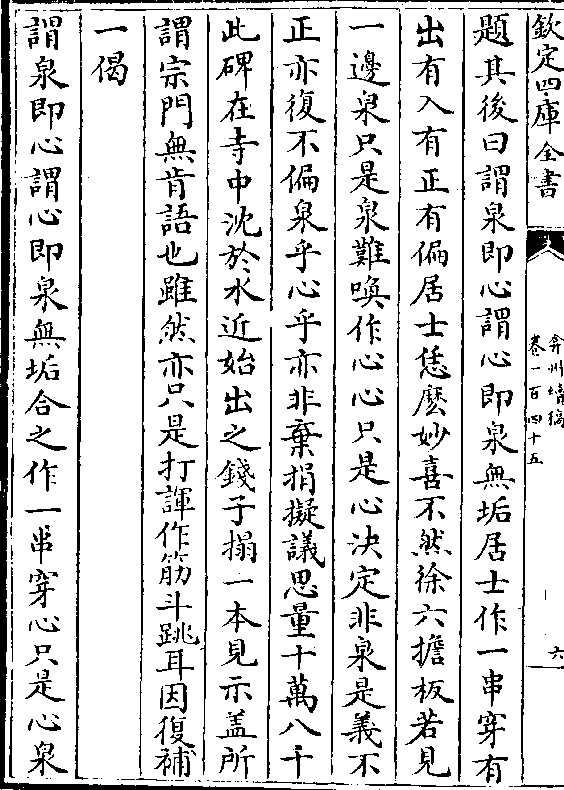 欽定四庫全書
弇州續稿
卷一百四十五
六
題其後曰謂泉即心謂心即泉無垢居士作一串穿有
出有入有正有偏居士恁麽妙喜不然徐六擔板若見
一邊泉只是泉難喚作心心只是心決定非泉是義不
正亦復不偏泉乎心乎亦非棄捐擬議思量十萬八千
此碑在寺中沈於水近始出之錢子搨一本見示盖所
謂宗門無肯語也雖然亦只是打諢作筋斗跳耳因復補
一偈
謂泉即心謂心即泉無垢合之作一串穿心只是心泉